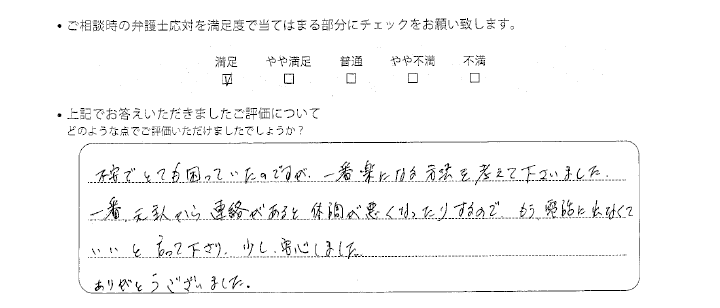 • ご相談時の弁護士応対を満足度で当てはまる部分にチェックをお願い致します。
満足 やや満足 普通 やや不満 不満
• 上記でお答えいただきましたご評価について
どのような点でご評価いただけましたでしょうか?
不安でとても困っていたのですが、一番楽になる方法を考えて下さいました。
一番、元夫から連絡があると体調が悪くなったりするので、もう電話に出なくて
いいと言って下さり、少し、安心しました
ありがとうございました。